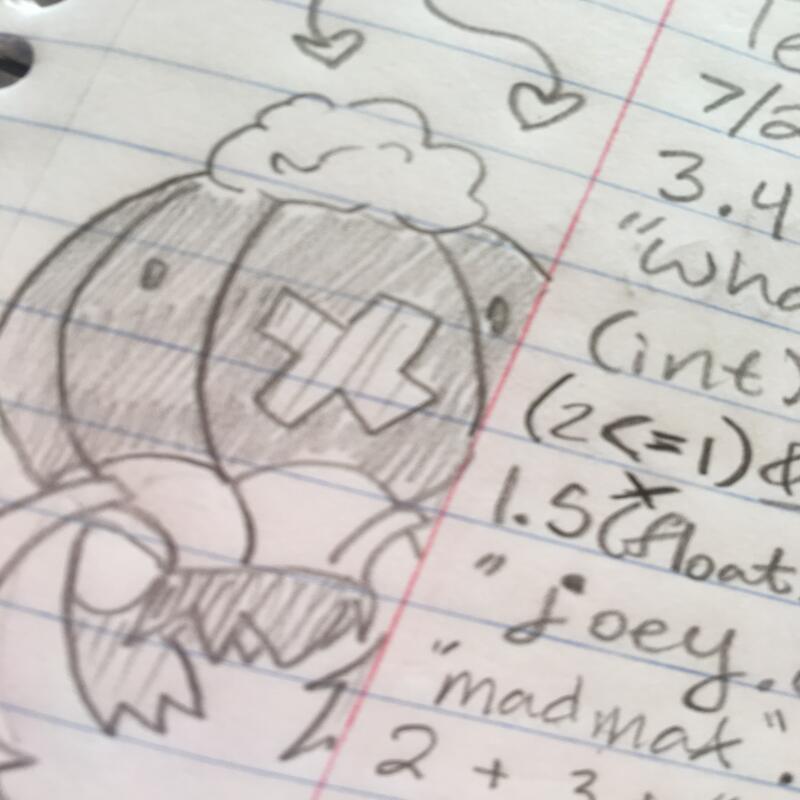 7/2
3.4
"wha
(int)
(2<=1) &
1.5 (float
"joey.
"madmax".
2 + 3